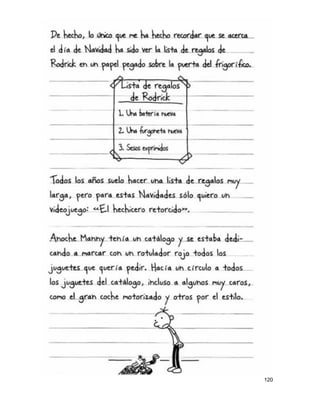 De hecho, lo único que me ha hecho recordar que se acerca
el día de Navidad ha sido ver la lista de regalos de
Rodrick en un papel pegado sobre la puerta del frigorífico.
Lista de regalos
de Rodrick
1. Una batería nueva
2. Una furgoneta nueva
3. Sesos exprimidos
Todos los años suelo hacer una lista de regalos muy
larga, pero para estas Navidades sólo quiero un
videojuego: «El hechicero retorcido».
Anoche Manny tenía un catálogo y se estaba dedi-
cando a marcar con un rotulador rojo todos los
juguetes que quería pedir. Hacía un círculo a todos
los juguetes del catálogo, incluso a algunos muy caros,
como el gran coche motorizado y otros por el estilo.
120